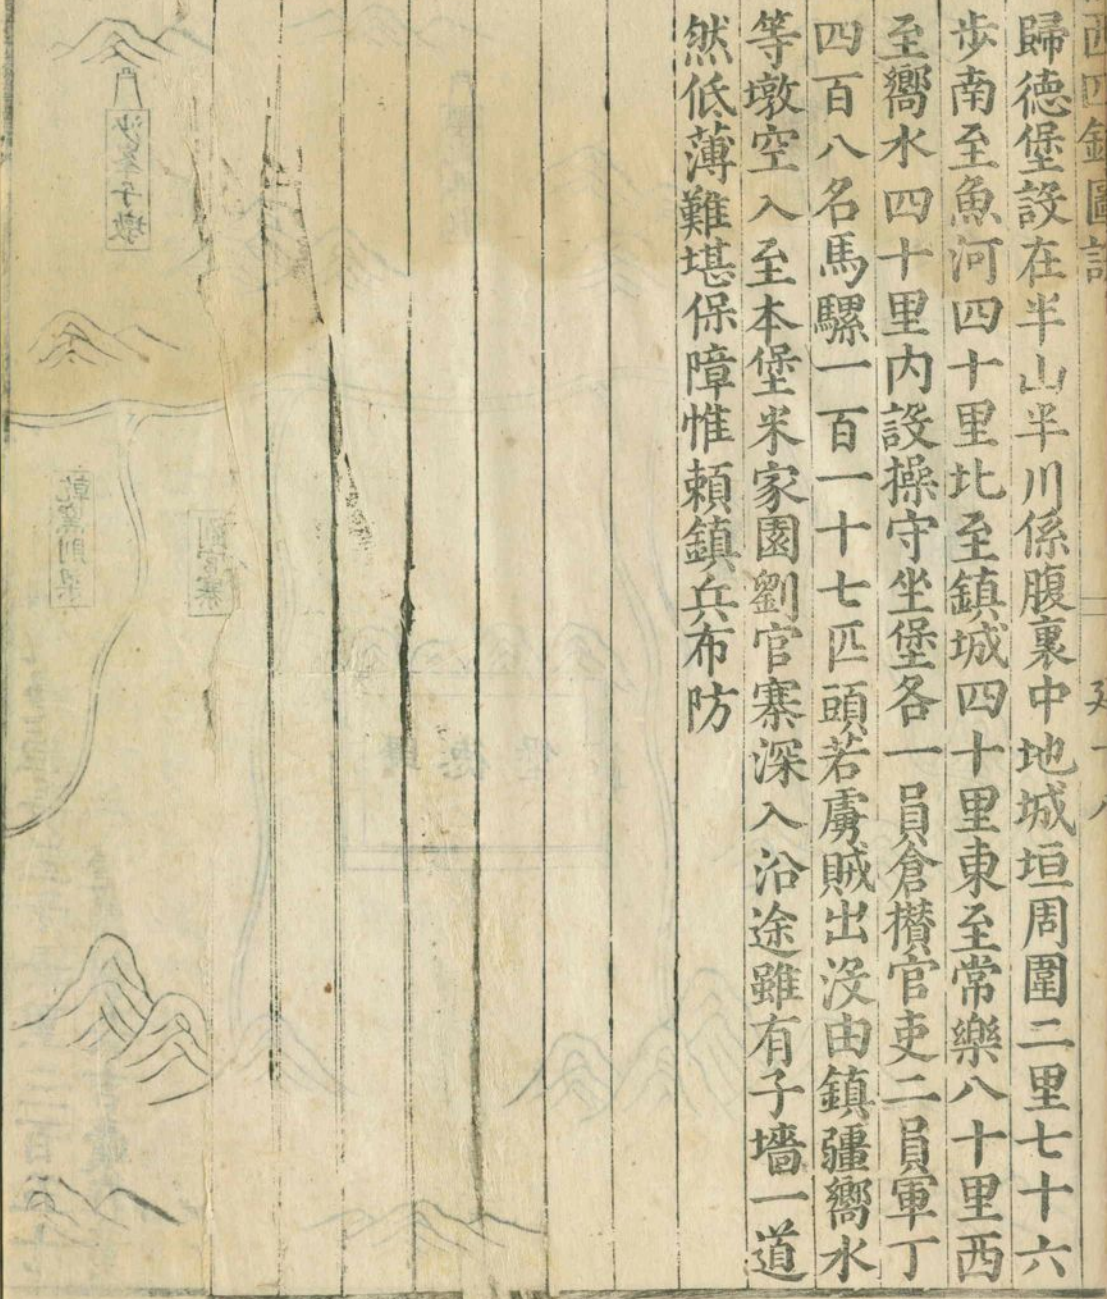 西四鎮圖說
延十八
歸德堡設在半山半川係腹裏中地城垣周圍二里七十六
步南至魚河四十里北至鎮城四十里東至常樂八十里西
至嚮水四十里内設操守坐堡各一員倉攅官吏二員軍丁
四百八名馬騾一百一十七匹頭若虜賊出沒由鎮疆嚮水
等墩空入至本堡米家園劉官寨深入沿途雖有子墻一道
然低薄難堪保障惟頼鎮兵布防